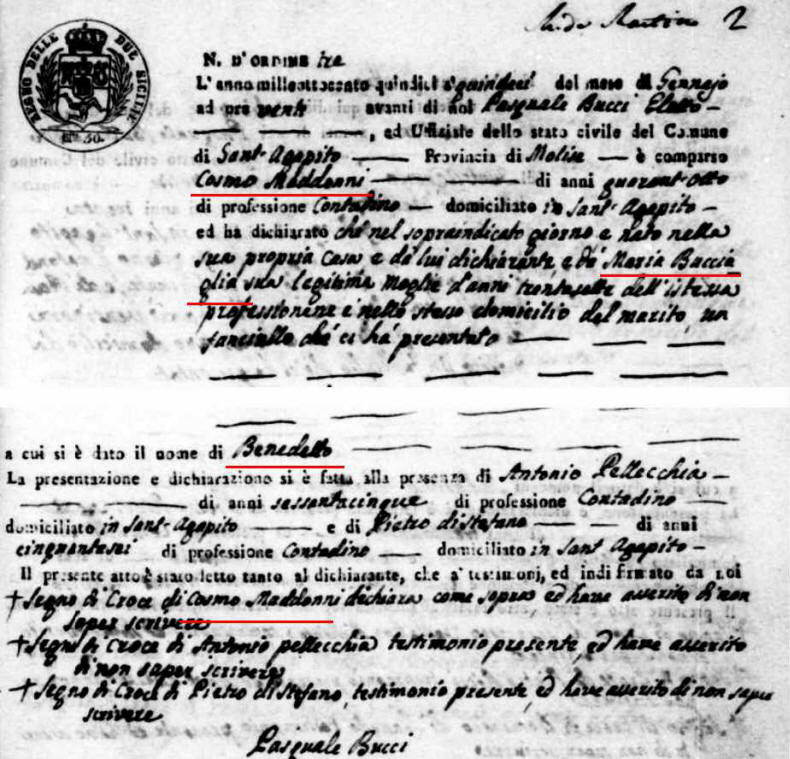 2
REGNO DELLE DUE SICILIE
N. D'ORDINE tre
L'anno milleottocento quindici a' quindeci del mese di Gennajo
ad ore venti avanti di noi Pasquale Bucci Eletto
, ed Ufiziale dello stato civile del Comune
di Sant'Agapito Provincia di Molise è comparso
Cosmo Maddonni di anni quarant'otto
di professione Contadino domiciliato in Sant'Agapito
ed ha dichiarato che nel sopraindicato giorno è nato nella
sua propria casa e da lui dichiarante, e da Maria Buccia
glia sua legitima moglie d'anni trentasette dell'istessa
professione e nello stesso domicilio del marito un
fanciullo che ci ha presentato
a cui si è dato il nome di Benedetto
La presentazione e dichiarazione si è fatta alla presenza di Antonio Pellecchia
di anni sessantacinque di professione Contadino
domiciliato in Sant'Agapito e di Pietro di Stefano di anni
cinquantasei di professione Contadino domiciliato in Sant'Agapito
Il presente atto è stato letto tanto al dichiarante, che a' testimonj, ed indi firmato da noi
+ Segno di Croce di Cosmo Maddonni dichiara come sopra ed have asserito di non
saper scrivere
+ Segno di Croce di Antonio pellecchia testimonio presente, ed have asserito
di non saper scrivere
+ Segno di Croce di Pietro di Stefano, testimonio presente, ed have asserito di non saper
scrivere
Pasquale Bucci